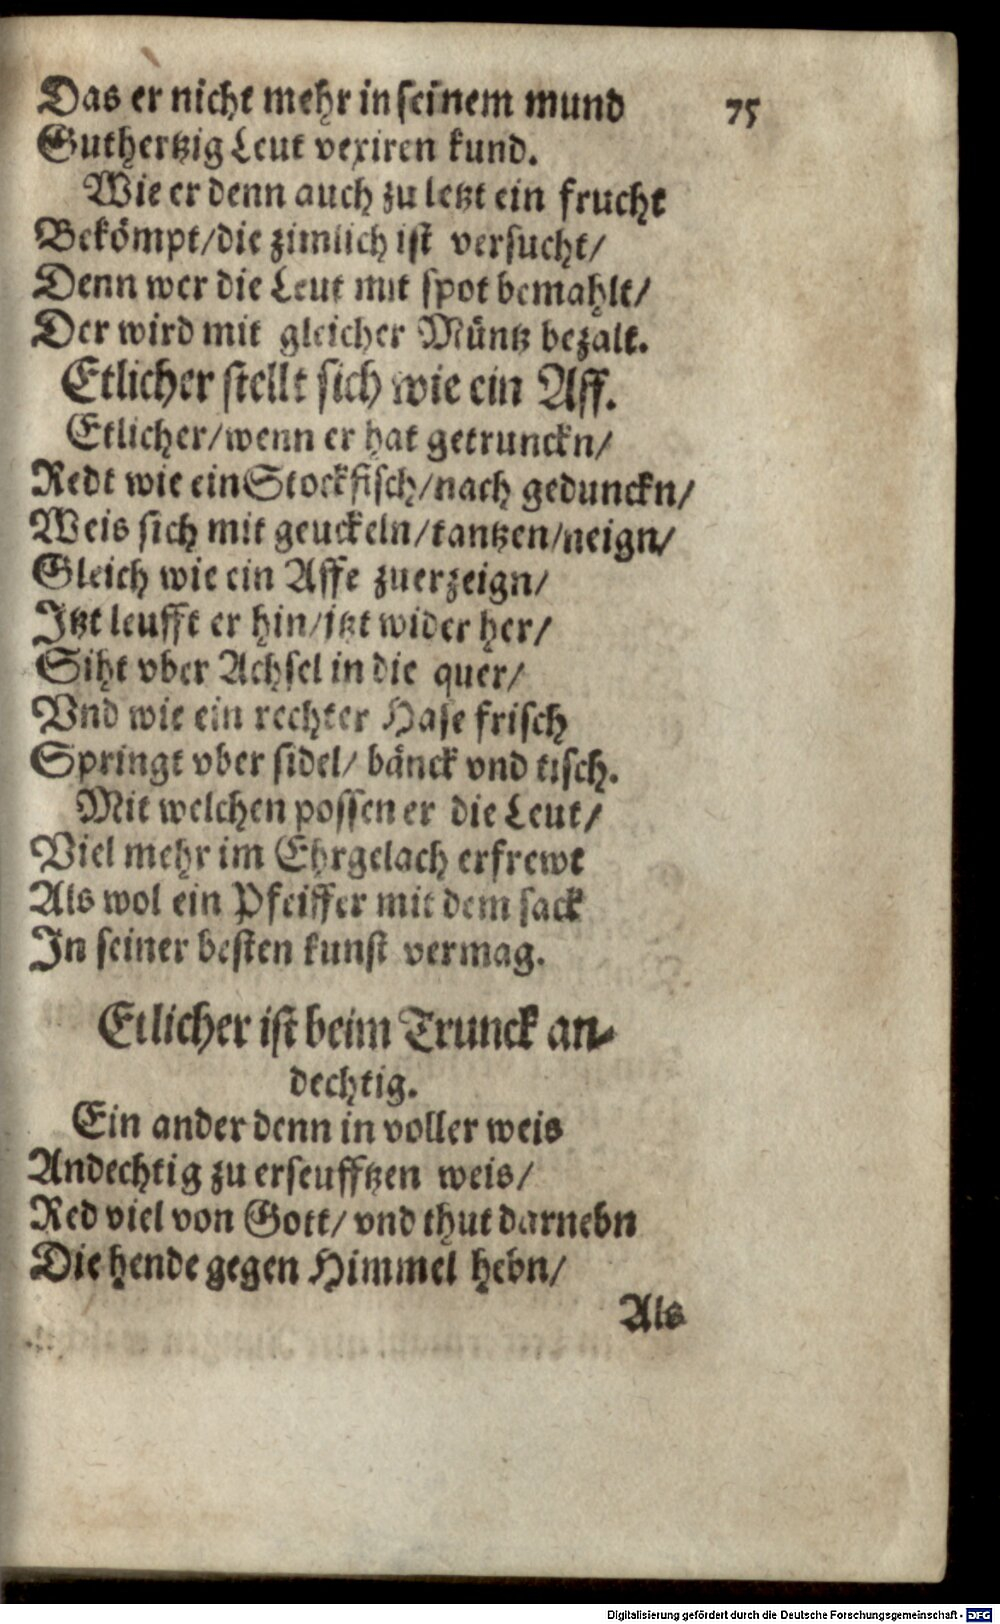 Das er nicht mehr in seinem mund 75
Guthertzig Leut vexiren kund.
Wie er denn auch zu letzt ein frucht
Bekömpt/die zimlich ist versucht/
Denn wer die Leut mit spot bemahlt/
Der wird mit gleicher Müntz bezalt.
Etlicher stellt sich wie ein Aff.
Etlicher/wenn er hat getrunckn/
Redt wie ein Stockfisch/nach gedunckn/
Weis sich mit geuckeln/tantzen/neign/
Gleich wie ein Affe zuerzeign/
Jtzt leufft er hin/jtzt wider her/
Siht vber Achsel in die quer/
Vnd wie ein rechter Hase frisch
Springt vber sidel/ bänck vnd tisch.
Mit welchen possen er die Leut/
Viel mehr im Ehrgelach erfrewt
Als wol ein Pfeiffer mit dem sack
Jn seiner besten kunst vermag.
Etlicher ist beim Trunck an-
dechtig.
Ein ander denn in voller weis
Andechtig zu erseufftzen weis/
Red viel von Gott/ vnd thut darnebn
Die hende gegen Himmel hebn/
Als
Digitalisierung gefördert durch die Deutsche Forschungsgemeinschaft - DFG